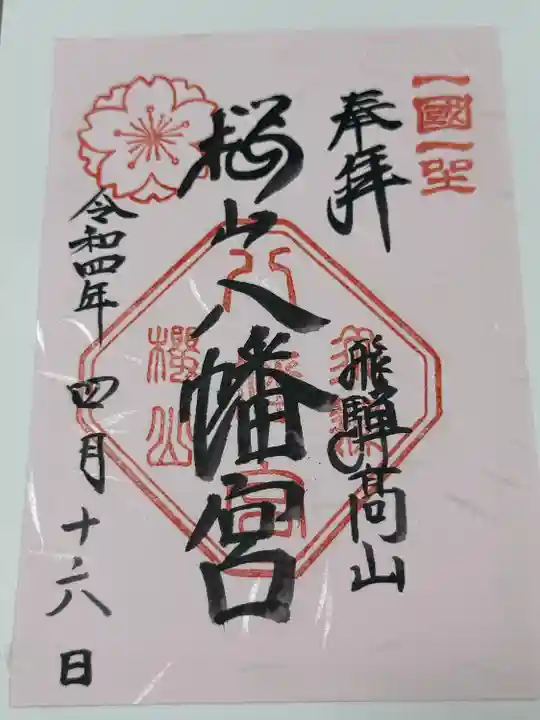 一國一社
奉拝
飛騨髙山
桜山八幡宮
八幡宮
櫻山
令和四年 四月十六日